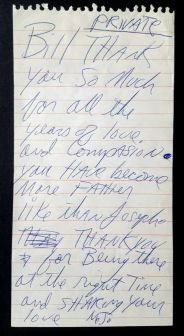 PRIVATE
Bill THANK
you So Much
for all the
years of love
and Compassion
you HAVE become
More FATHER
like than Joseph
THANK you
for Being there
at the right Time
and SHARING your
love